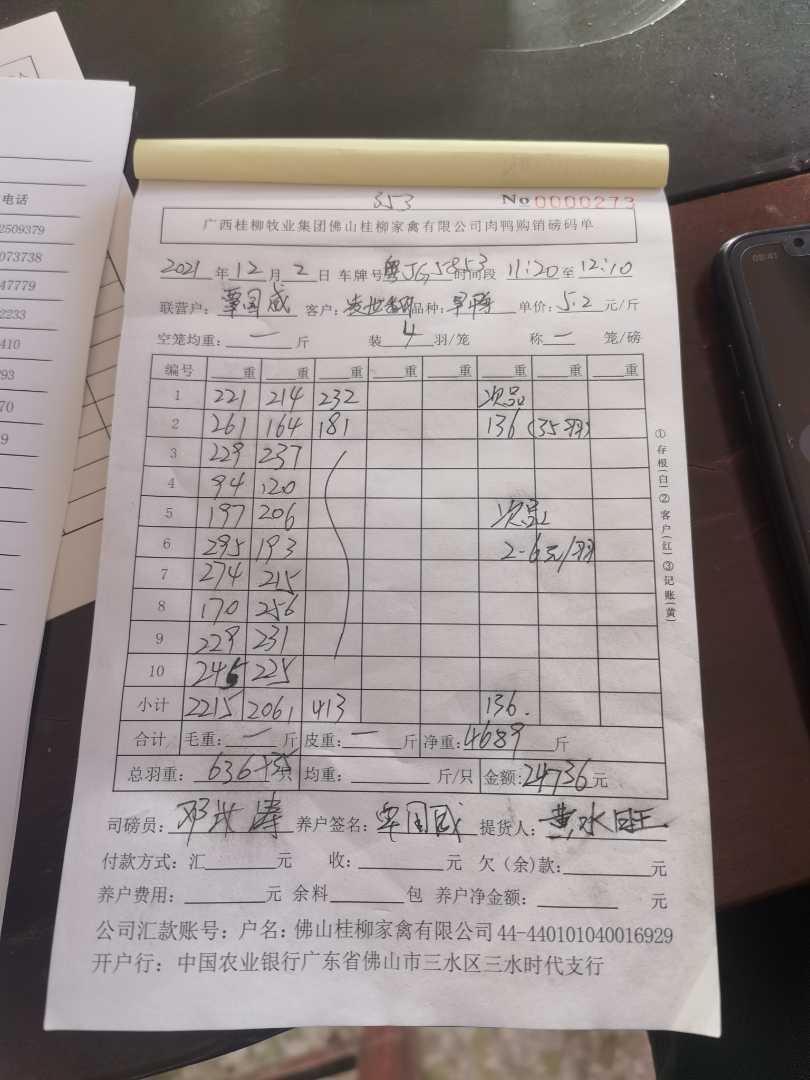 353
No 0000273
广西桂柳牧业集团佛山桂柳家禽有限公司肉鸭购销磅码单
2021年12月2日 车牌号粤JG5853时间段 11:20至12:10
联营户：覃国威 客户： 品种： 单价：5.2元/斤
空笼均重：一斤 装4羽/笼 称一笼/磅
编号 重 重 重 重 重 重 重 重
1 221 214 232 次品
2 261 164 181 136 (35羽)
3 229 237
4 94 120
5 197 206 次品
6 295 193 2-6元/羽
7 274 215
8 170 256
9 229 231
10 245 225
小计 2215 2061 413 136.
合计 毛重：一斤 皮重：一斤 净重：4689斤
总羽重：636+35只 均重：斤/只 金额：24736元
司磅员：邓 涛 养户签名：覃国威 提货人：黄水旺
付款方式：汇 元 收： 元 欠（余）款： 元
养户费用： 元 余料 包 养户净金额： 元
公司汇款账号：户名：佛山桂柳家禽有限公司 44-440101040016929
开户行：中国农业银行广东省佛山市三水区三水时代支行
①存根(白)②客户(红)③记账(黄)
电话
2509379
073738
47779
2233
410
793
70
9
08:41